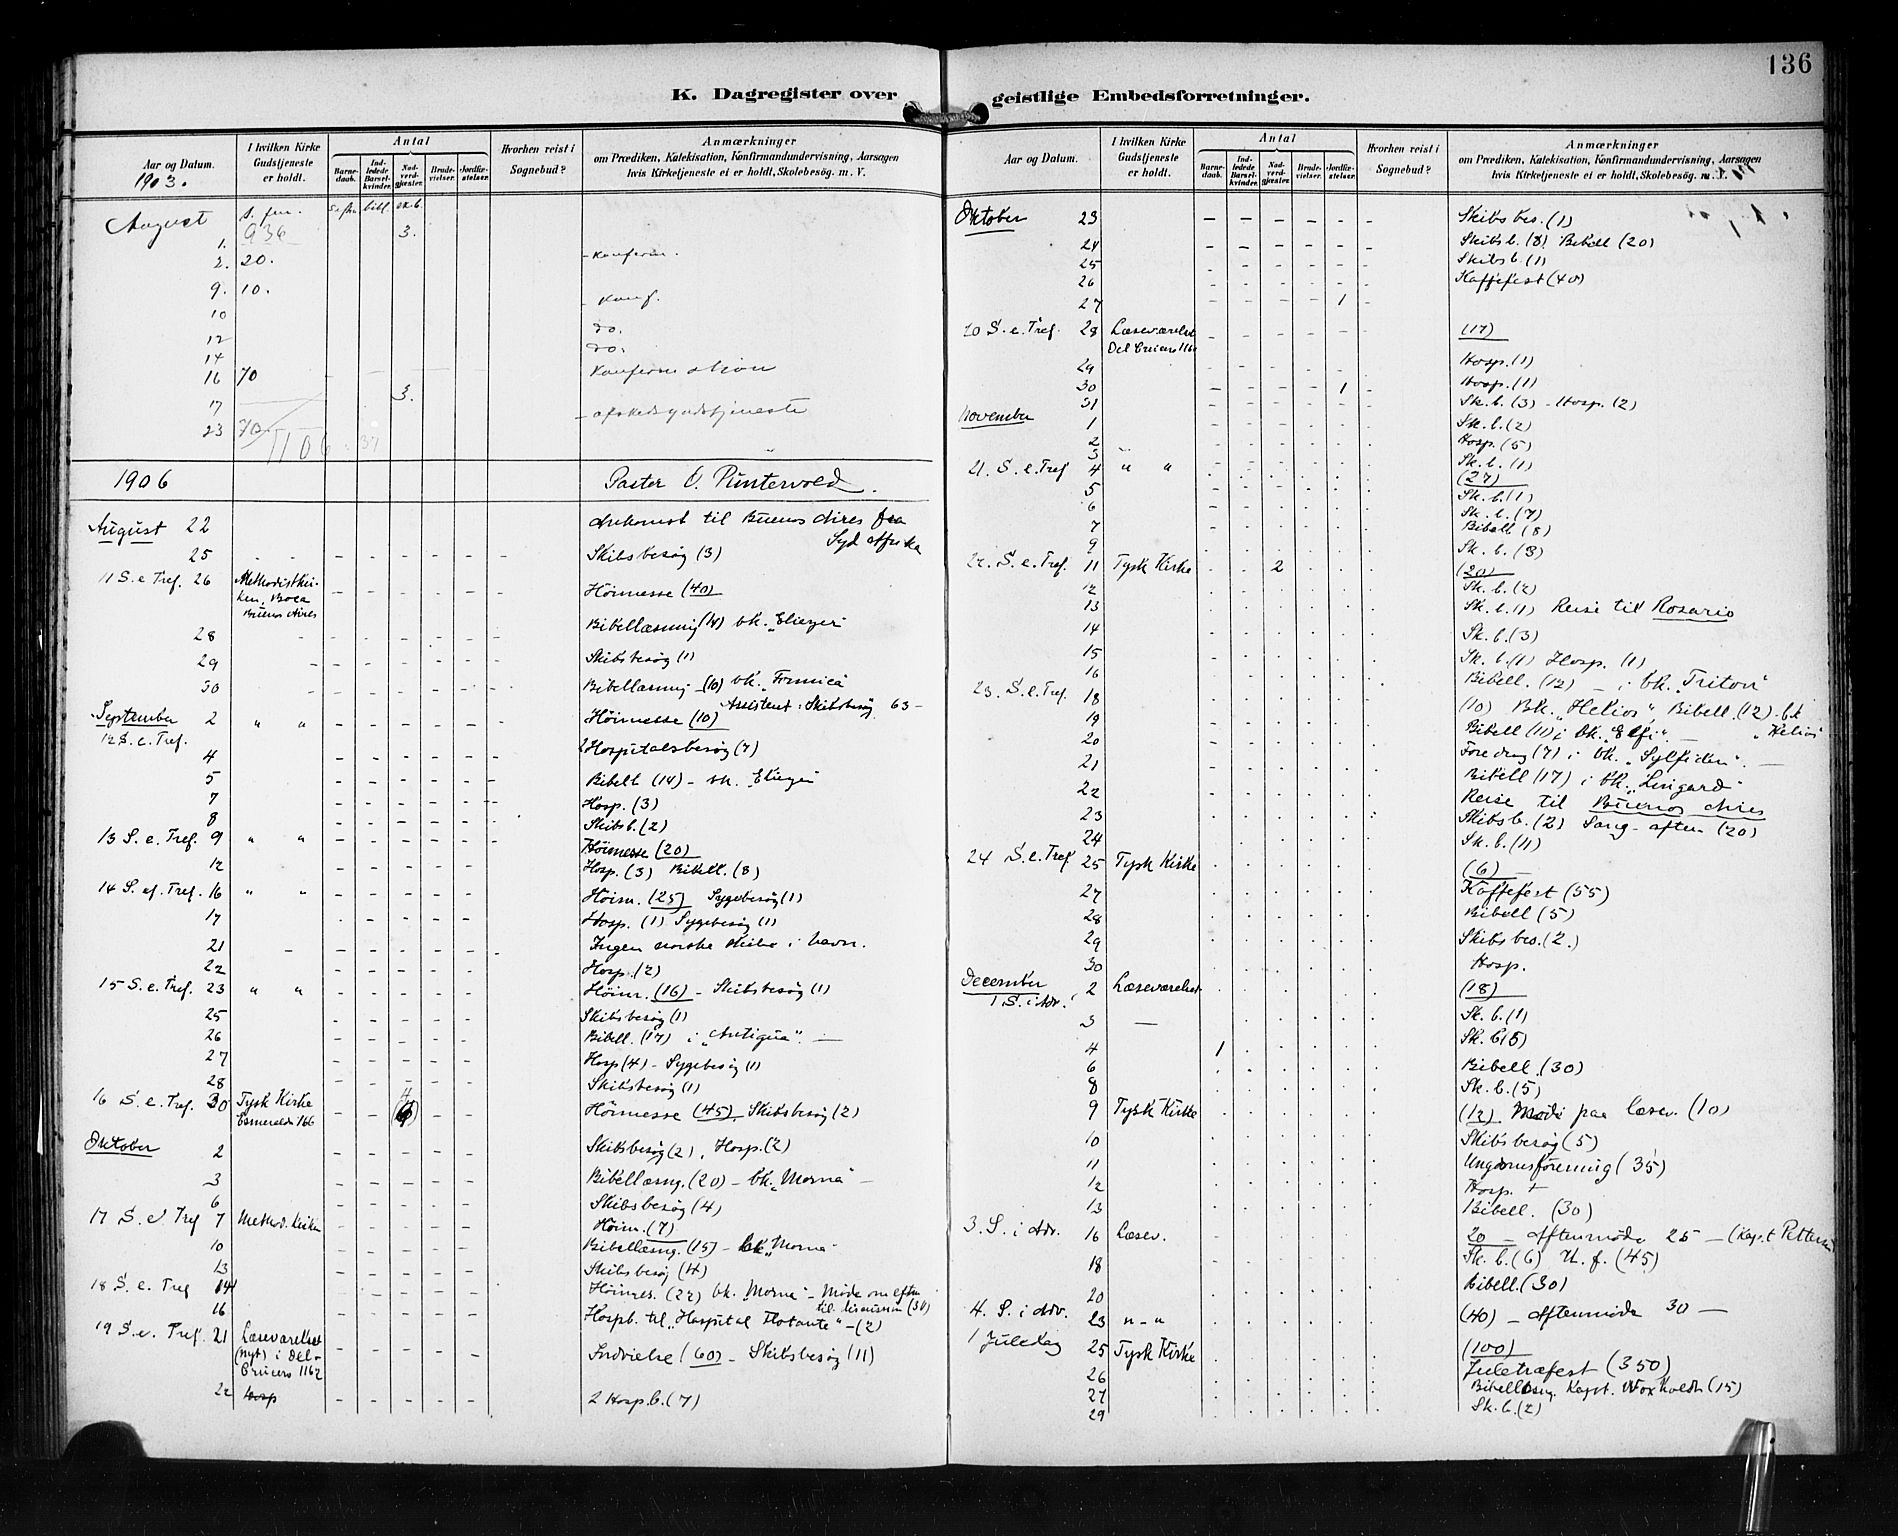 136
K. Dagregister over geistlige Embedsforretninger.
Aar og Datum. 1903.
I hvilken Kirke Gudstjeneste er holdt.
Antal
Barnedaab.
Indledede Barselkvinder.
Nadverdgjæster.
Brudevielser.
Jordfæstelser.
Hvorhen reist i Sognebud?
Anmærkninger
om Prædiken, Katekisation, Konfirmandundervisning, Aarsagen
hvis Kirketjeneste ei er holdt, Skolebesøg. m. V.
August
936
1. 3.
2. 20. - Konfirm.
9. 10. - Konf.
10 do.
12 do.
14
16 70 Konfirmation
17 3.
23 70 - afskedsgudstjeneste
1106
1906 Pastor O.
August 22 Ankomst til Buenos Aires fra
Syd Afrika
25 Skibsbesøg (3)
11 S. e Tref. 26 Methodistkirken, Boca Buenos Aires Höimesse (40)
28 Bibellæsning bk. „Eliezer"
29 Skibsbesøg (1)
30 Bibellæsning (10) bk. „Formica"
Assistent: Skibsbesøg 63 -
September 2 " " Höimesse (10)
12 S. e. Tref.
4 2 Hospitalsbesøg (7)
5 Bibell. (14) - bk. „Eliezer"
7 Hosp. (3)
8 Skibsb. (2)
13 S. e. Tref. 9 " " Höimesse (20)
12 Hosp. (3) Bibell. (8)
14 S. ef. Tref. 16 " " Höim. (25) Sygebesøg (1)
17 Hosp. (1) Sygebesøg (1)
21 Ingen norske skibe i havn.
22 Hosp. (2)
15 S. e. Tref. 23 " " Höim. (16) - Skibsbesøg (1)
25 Skibsbesøg (1)
26 Bibell. (17) i „Antigua" -
27 Hosp (4) - Sygebesøg (1)
28 Skibsbesøg (1)
16 S. e. Tref. 30 Tysk Kirke Esmeralda 166 Höimesse (45) Skibsbesøg (2)
Oktober 2 Skibsbesøg (2), Hosp. (2)
3 Bibellæsng. (20) - bk. „Morna" -
6 Skibsbesøg (4)
17 S. e Tref 7 Method. Kirken Höim. (7)
10 Bibellæsng. (15) - bk „Morna"
13 Skibsbesøg (4)
18 S. e. Tref 14 Höimes. (22) bk. „Morna" - Møde om aften
til discussion (30)
16 Hospb. til „Hospital Flotante" - (2)
19 S. e. Tref. 21 Læseværelset (nyt) i Del-Crucero 1162 Indvielse (60) - Skibsbesøg (11)
22 Hosp 2 Hosp. b. (7)
Aar og Datum.
I hvilken Kirke Gudstjeneste er holdt.
Antal
Barnedaab.
Indledede Barselkvinder.
Nadverdgjæster.
Brudevielser.
Jordfæstelser.
Hvorhen reist i Sognebud?
Anmærkninger
om Prædiken, Katekisation, Konfirmandundervisning, Aarsagen
hvis Kirketjeneste ei er holdt, Skolebesøg. m. V.
Oktober 23 Skibsbes. (1)
24 Skibsb. (8) Bibell (20)
25 Skibsb. (1)
26 Kaffefest (40)
27 1
20 S. e. Tref. 28 Læseværelset Del Crucero 1162 (17)
29 Hosp. (1)
30 1 Hosp. (1)
31 Sk. b. (3) - Hosp. (2)
November 1 Sk. b. (2)
2 Hosp. (5)
3 Sk. b. (1)
21. S. e. Tref 4 " " (27)
5 Sk. b. (1)
6 Sk. b. (7)
7 Bibell (8)
9 Sk. b. (3)
22. S. e. Tref. 11 Tysk Kirke 2 (20)
12 Sk. b. (2)
13 Sk. b. (1) Reise til Rosario
14 Sk. b. (3)
15 Sk. b. (1) Hosp. (1)
16 Bibell. (12) - i bk. „Triton"
23. S. e. Tref. 18 (10) Bk. „Helios", Bibell. (12). bk
19 Bibell (11) i bk. „Elfi". - „Helios"
20 Foredrag (7) i bk. „Sylfiden". -
21 Bibell (17) i bk. „Lingard"
22 Reise til Buenos Aires
23 Skibsb. (2) Sang-aften (20)
24 Sk. b. (11)
24 S. e. Tref 25 Tysk Kirke (6)
27 Kaffefest (55)
28 Bibell (5)
29 Skibsbes. (2.)
30 Hosp.
December 2 Læseværelset (18)
1 S. i Adv.
3 - Sk. b. (1)
4 1 Sk. b (5)
6 Bibell. (30)
8 Sk. b. (5)
9 Tysk Kirke (12) Møde paa Læsev. (10)
10 Skibsbesøg (5)
11 Ungdomsforening (35)
12 Hosp. +
13 Bibell. (30)
3. S. i Adv. 16 Læsev. 20 - Aftenmøde 25 - (Kapt.
18 Sk. b. (6) U. f. (45)
20 Bibell. (30)
4. S. i Adv. 23 " - " (40) - Aftenmøde 30 -
1 Juledag 25 Tysk Kirke (100)
26 Juletræfest (350)
27 Bibellæsng. Kapt. (15)
29 Sk. b. (2)